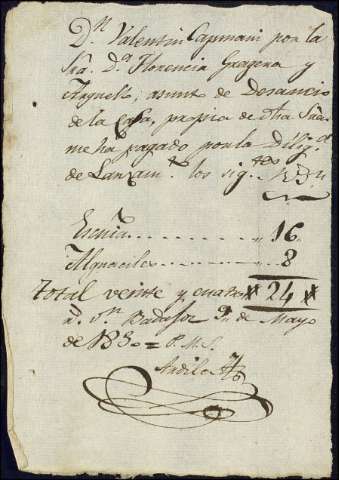 Dn. Valentin Capmani por la
Sra. Da. Florencia Gragera y
Arguello, asunto de Desaucio
de la Casa, propia de dha Sra.
me ha pagado por la Dilig.a
de Lanzam.to los sig.tes
Escriv.a 16
Alguaciles 8
Total veinte y cuatro # 24 #
r.s v.n Badajoz 9 de Mayo
de 1830 =